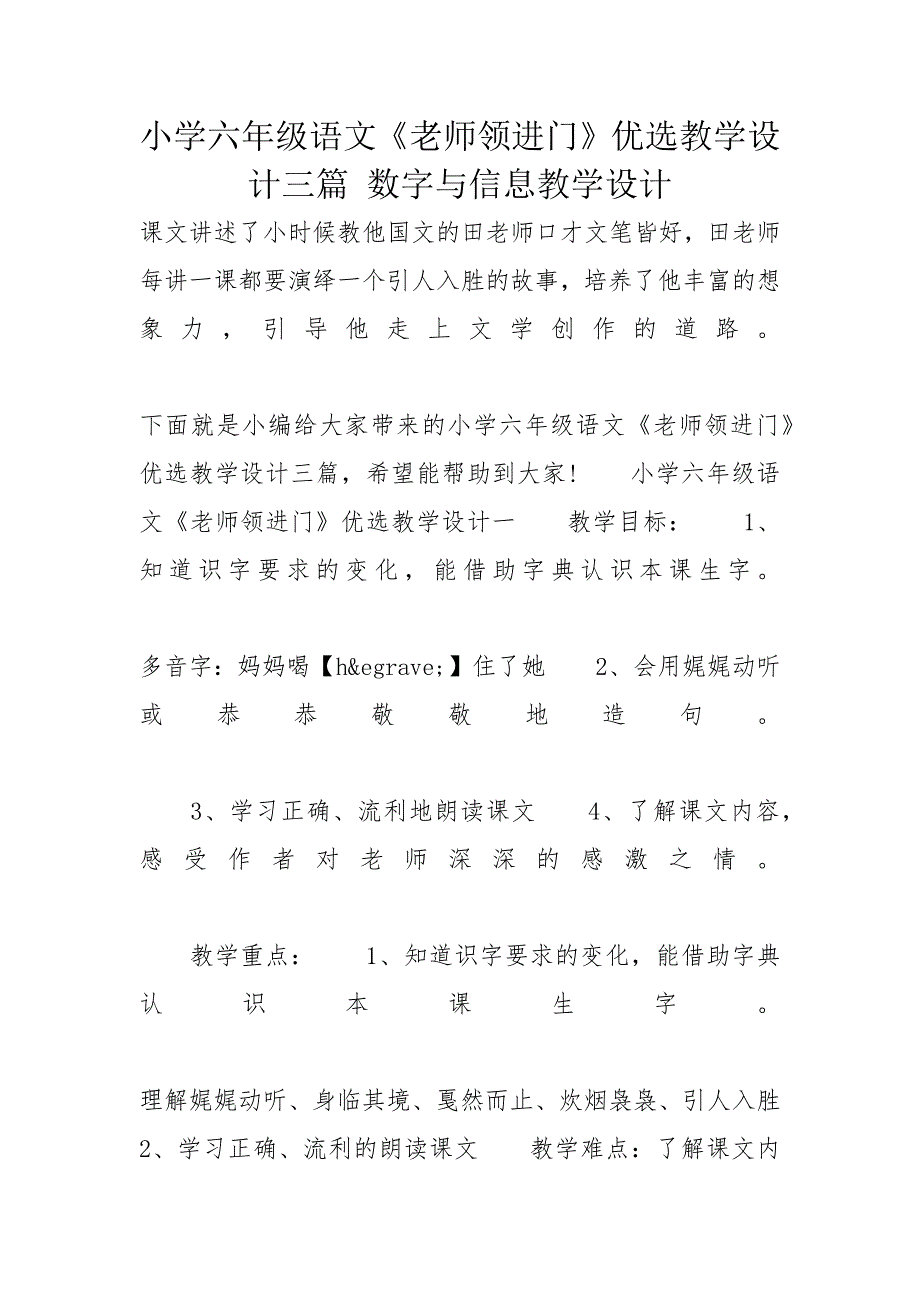 小学六年级语文《老师领进门》优选教学设
计三篇 数字与信息教学设计
课文讲述了小时候教他国文的田老师口才文笔皆好，田老师
每讲一课都要演绎一个引人入胜的故事，培养了他丰富的想
象力，引导他走上文学创作的道路。
下面就是小编给大家带来的小学六年级语文《老师领进门》
优选教学设计三篇，希望能帮助到大家! 小学六年级语
文《老师领进门》优选教学设计一 教学目标： 1、
知道识字要求的变化，能借助字典认识本课生字。
多音字：妈妈喝【h&egrave;】住了她 2、会用娓娓动听
或恭恭敬敬地造句。
3、学习正确、流利地朗读课文 4、了解课文内容，
感受作者对老师深深的感激之情。
教学重点： 1、知道识字要求的变化，能借助字典
认识本课生字。
理解娓娓动听、身临其境、戛然而止、炊烟袅袅、引人入胜
2、学习正确、流利的朗读课文 教学难点：了解课文内